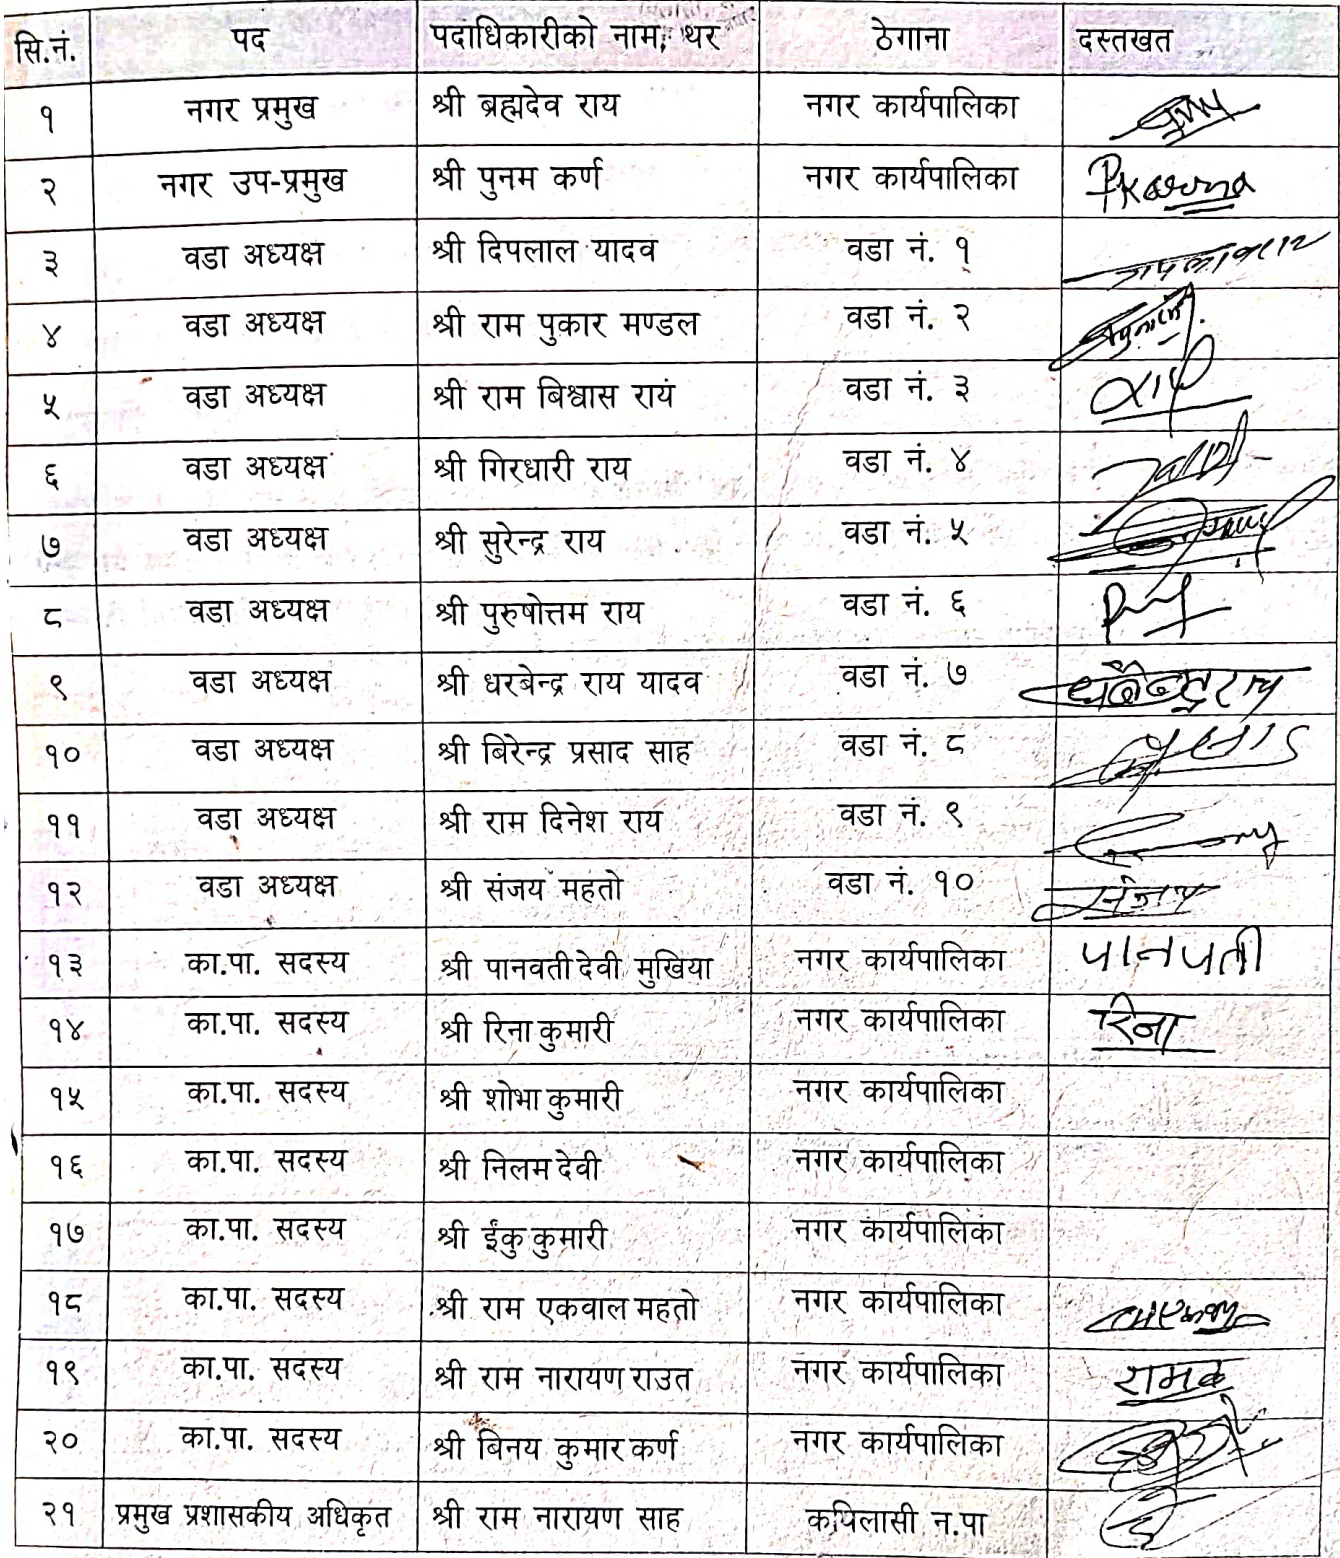 सि.नं. पद पदाधिकारीको नाम, थर ठेगाना दस्तखत
१ नगर प्रमुख श्री ब्रह्मदेव राय नगर कार्यपालिका
२ नगर उप-प्रमुख श्री पुनम कर्ण नगर कार्यपालिका PKarna
३ वडा अध्यक्ष श्री दिपलाल यादव वडा नं. १
४ वडा अध्यक्ष श्री राम पुकार मण्डल वडा नं. २
५ वडा अध्यक्ष श्री राम बिश्वास राय वडा नं. ३
६ वडा अध्यक्ष श्री गिरधारी राय वडा नं. ४
७ वडा अध्यक्ष श्री सुरेन्द्र राय वडा नं. ५
८ वडा अध्यक्ष श्री पुरुषोत्तम राय वडा नं. ६
९ वडा अध्यक्ष श्री धरबेन्द्र राय यादव वडा नं. ७
१० वडा अध्यक्ष श्री बिरेन्द्र प्रसाद साह वडा नं. ८
११ वडा अध्यक्ष श्री राम दिनेश राय वडा नं. ९
१२ वडा अध्यक्ष श्री संजय महतो वडा नं. १० संजय
१३ का.पा. सदस्य श्री पानवती देवी मुखिया नगर कार्यपालिका पानपती
१४ का.पा. सदस्य श्री रिना कुमारी नगर कार्यपालिका रिना
१५ का.पा. सदस्य श्री शोभा कुमारी नगर कार्यपालिका
१६ का.पा. सदस्य श्री निलम देवी नगर कार्यपालिका
१७ का.पा. सदस्य श्री ईंकु कुमारी नगर कार्यपालिका
१८ का.पा. सदस्य श्री राम एकवाल महतो नगर कार्यपालिका
१९ का.पा. सदस्य श्री राम नारायण राउत नगर कार्यपालिका
२० का.पा. सदस्य श्री बिनय कुमार कर्ण नगर कार्यपालिका
२१ प्रमुख प्रशासकीय अधिकृत श्री राम नारायण साह कपिलासी न.पा